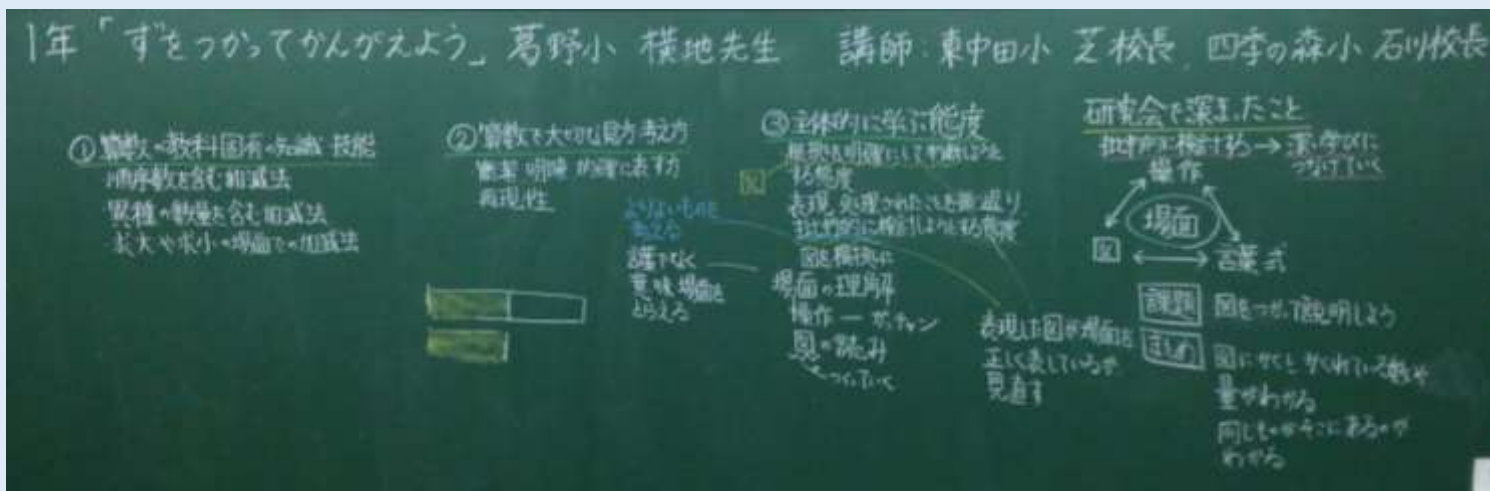 1年「ずをつかってかんがえよう」葛野小 横地先生 講師:東中田小 芝校長、四季の森小 石川校長
① 算数の教科固有の知識・技能
順序数を含む加減法
異種の数量を含む加減法
求大や求小の場面での加減法
② 算数で大切な見方・考え方
簡潔 明瞭 的確に表す力
再現性
よりよいものを
言葉でなく
意味 場面を
とらえる
③ 主体的に学ぶ態度
根拠を明確にして判断しようと
する態度
図
表現、処理されたことを振り返り
批判的に検討しようとする態度
図を根拠に
場面の理解
操作 ー ガッチャン
図の読み
つくっていく
表現した図が場面を
正しく表しているか
見直す
研究会で深まったこと
批判的に検討する→深い学びに
つなげていく
操作
場面
図
言葉 式
課題 図をつかって説明しよう
まとめ 図にかくとかくれている数や
量がわかる
同じものがそこにあるのが
わかる